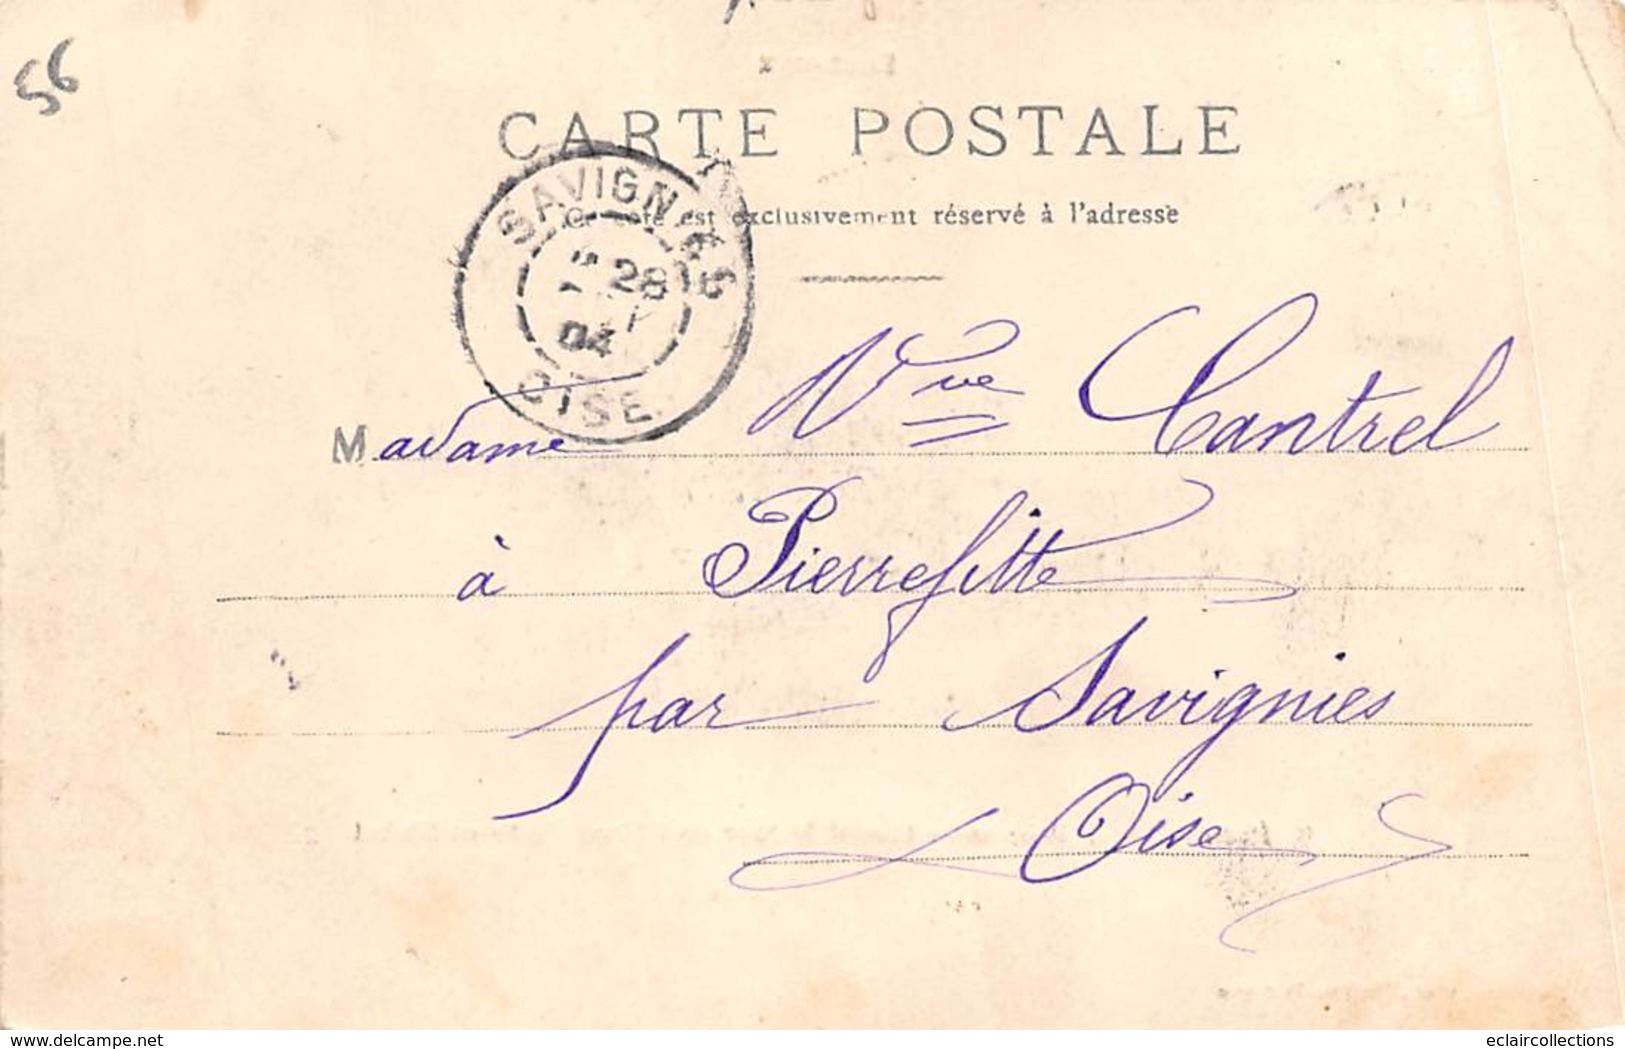 56
CARTE POSTALE
est exclusivement réservé à l'adresse
SAVIGNIES
28
04
OISE
Madame Vve Cantrel
à Pierrefitte
par Savignies
Oise
delcampe.net
eclaircollections